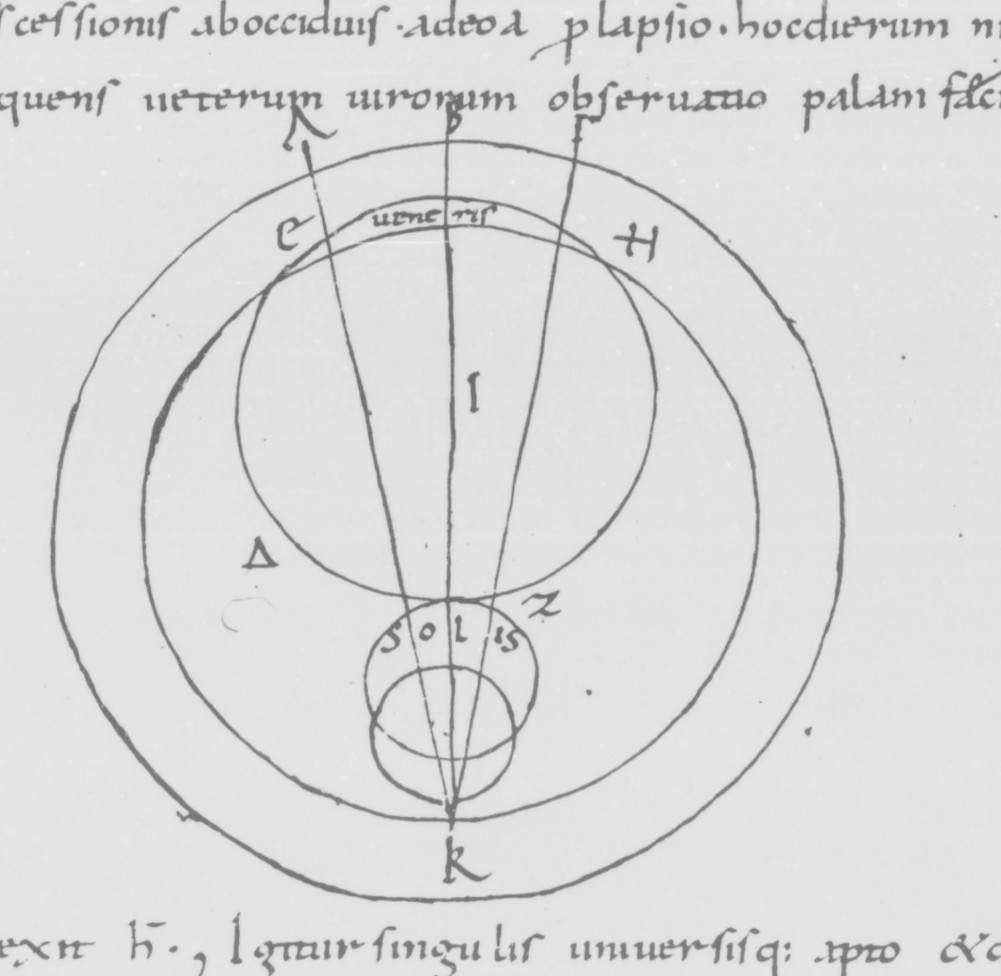 scessionis aboccıduis·adeo a plapsio·hocdierum
quens ueterum uirorum obseruatio palam faci
Λ B Γ
e uene ris H
l
Δ Z
s o l is
k
exit h̄·, Igitur singulis uniuersisq: apto &